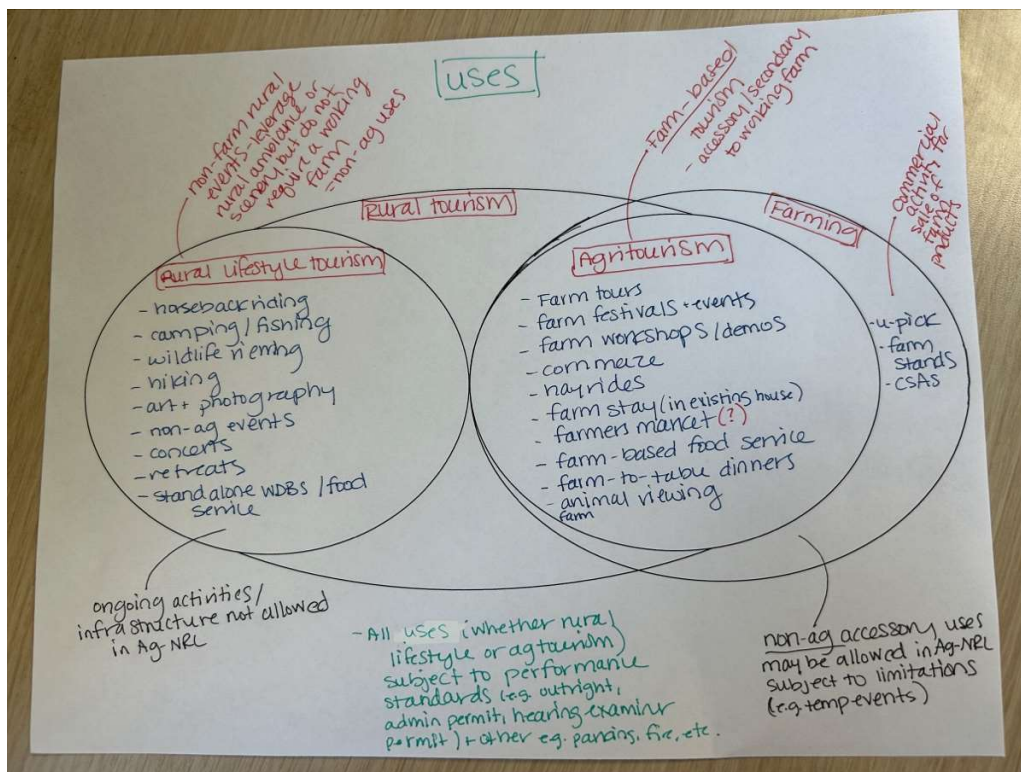 uses
non-farm rural
events - leverage
rural ambiance or
scenery but do not
require a working
farm
= non-ag uses
Farm-based
tourism
- accessory/secondary
to working farm
Commercial
activity for
sale of
farm
products
Rural tourism
Farming
Rural lifestyle tourism
- horseback riding
- camping / fishing
- wildlife viewing
- hiking
- art + photography
- non-ag events
- concerts
- retreats
- standalone WDBS / food
service
Agritourism
- Farm tours
- farm festivals + events
- farm workshops / demos
- corn maze
- hayrides
- farm stay (in existing house)
- farmers market (?)
- farm-based food service
- farm-to-table dinners
- animal viewing
farm
- u-pick
- farm
stands
- CSAS
ongoing activities /
infrastructure not allowed
in Ag-NRL
- All uses (whether rural
lifestyle or agtourism)
subject to performance
standards (e.g. outright,
admin permit, hearing examiner
permit) + other e.g. parking, fire, etc.
non-ag accessory uses
may be allowed in Ag-NRL
subject to limitations
(e.g. temp events)